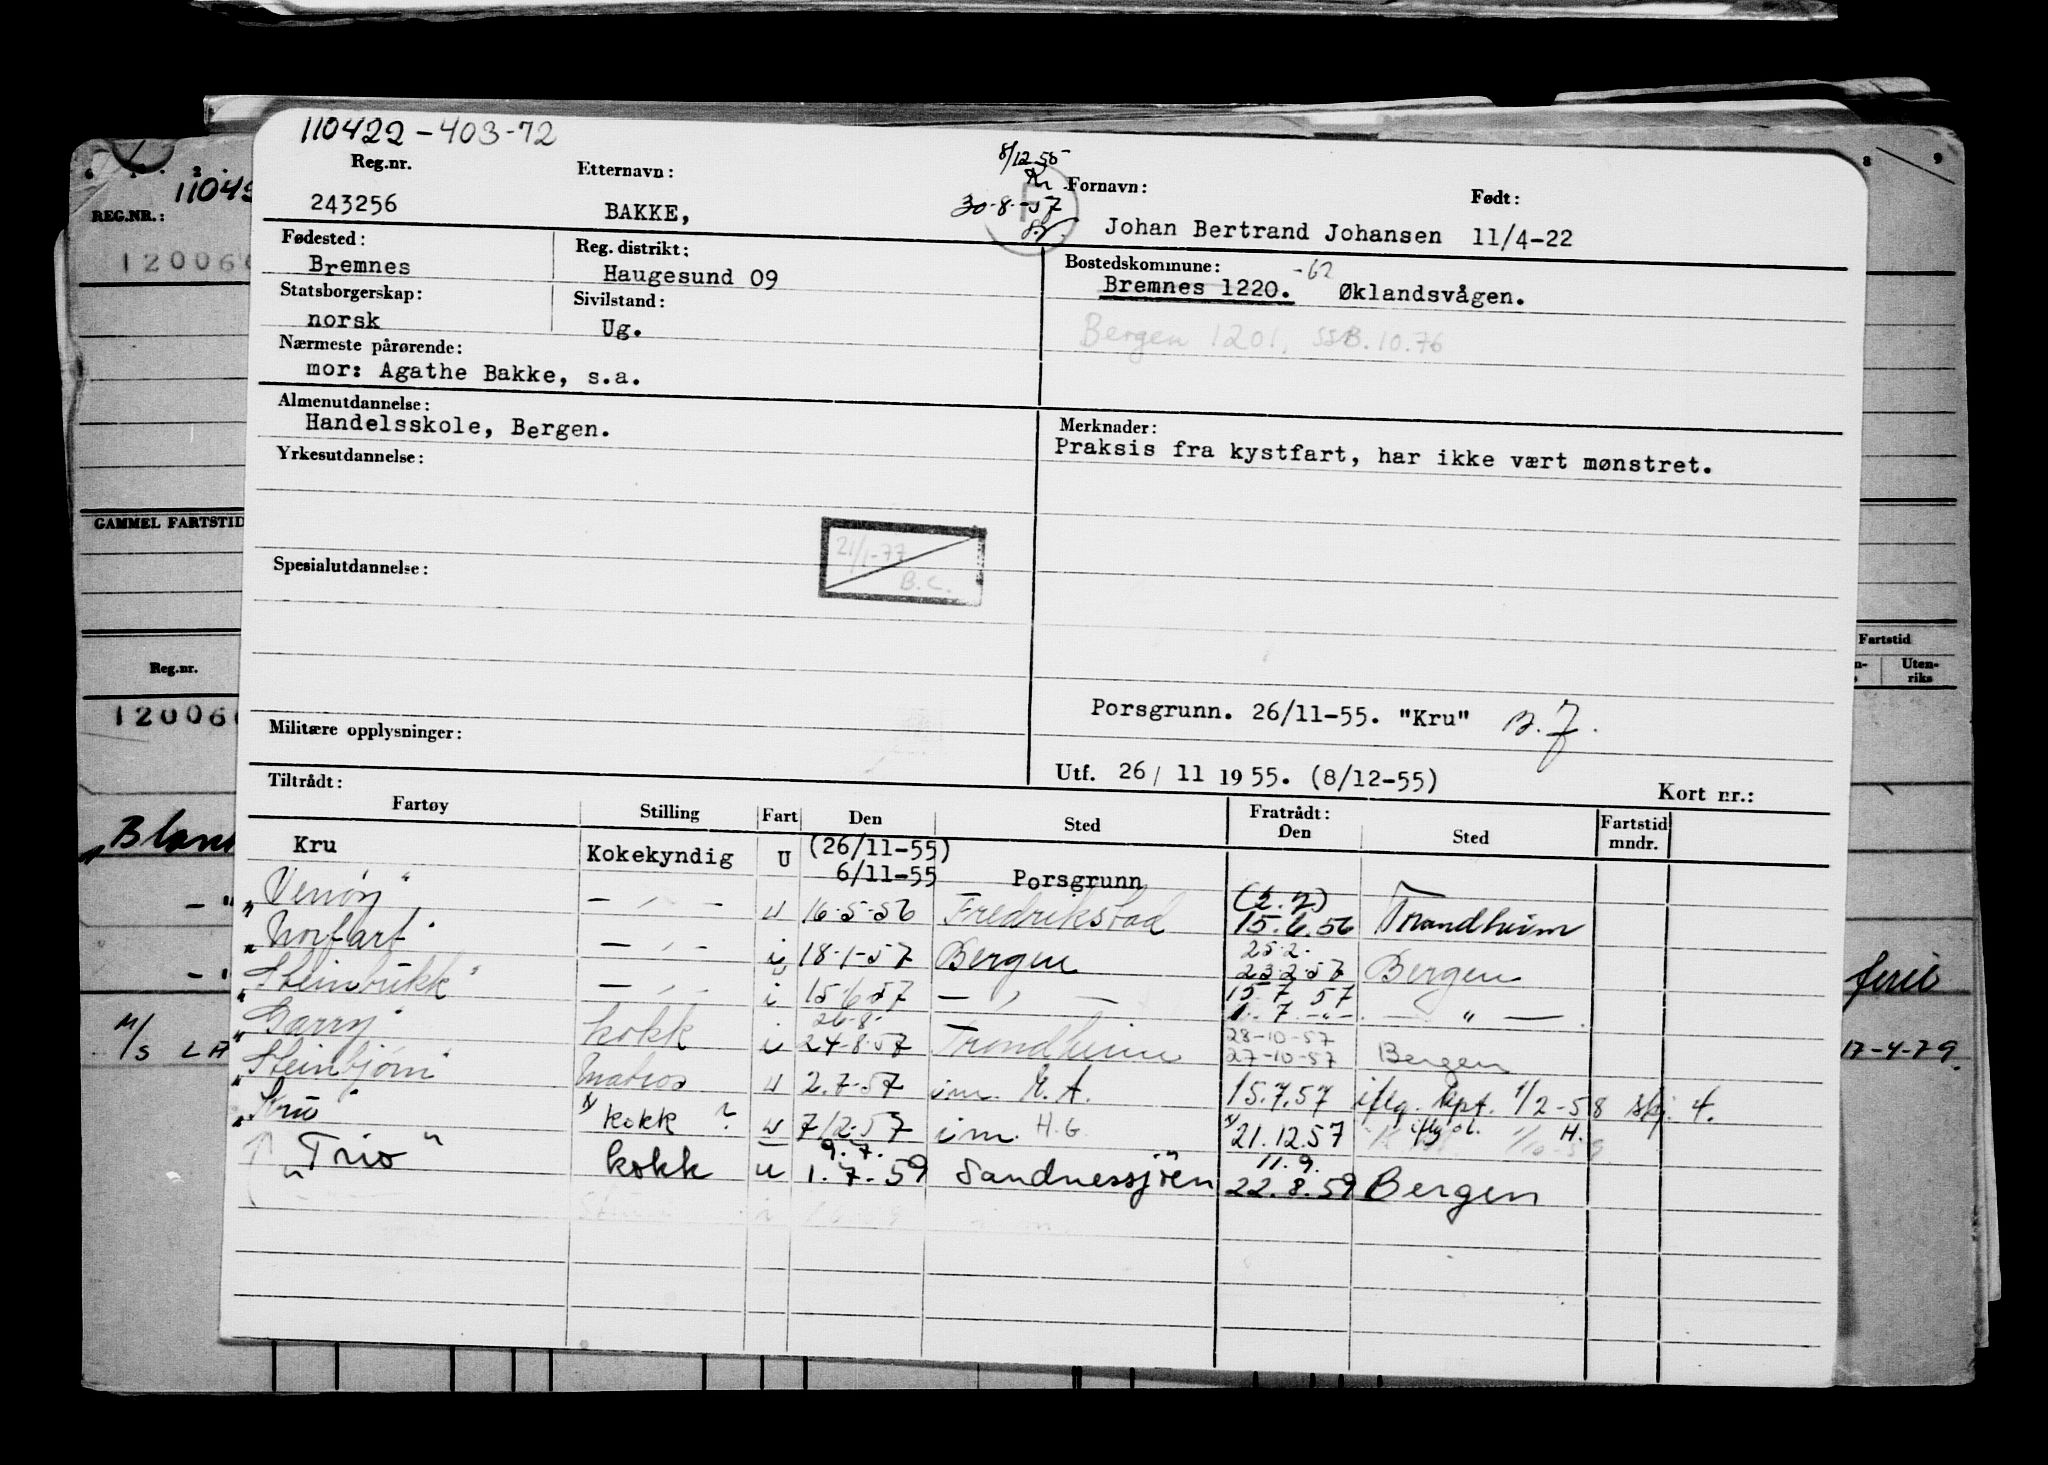 110422-403-72
Reg.nr.
243256
Etternavn:
BAKKE,
8/12 55
30-8-57
Fornavn:
Johan Bertrand Johansen
Født:
11/4-22
Fødested:
Bremnes
Reg. distrikt:
Haugesund 09
Bostedskommune:
Bremnes 1220. -62 Øklandsvågen.
Statsborgerskap:
norsk
Sivilstand:
Ug.
Bergen 1201, SSB.10.76
Nærmeste pårørende:
mor: Agathe Bakke, s.a.
Almenutdannelse:
Handelsskole, Bergen.
Merknader:
Praksis fra kystfart, har ikke vært mønstret.
Yrkesutdannelse:
21/1-77
B.C.
Spesialutdannelse:
Porsgrunn. 26/11-55. "Kru"
Militære opplysninger:
Utf. 26/ 11 1955. (8/12-55)
Kort nr.:
Tiltrådt:
Fartøy Stilling Fart Den Sted Fratrådt: Den Sted Fartstid mndr.
Kru Kokekyndig U (26/11-55) 6/11-55 Porsgrunn
— " — u 16-5-56 Fredrikstad (2.7) 15.6.56 Trondheim
"Norfart" — " — i 18-1-57 Bergen 25.2. 23.2.57 Bergen
"Steinbukk" — " — i 15-6-57 — " — 15.7.57 1.7.-"-. — " —
"Garry" kokk u 26-8- 24-8-57 Trondheim 28-10-57 27-10-57 Bergen
"Steinbjørn" Matros u 2.7-57 im. 15.7.57 iflg. kpt. 1/2-58 skj. 4.
"Kru" kokk ? u 7/12-57 im. H.G. 21.12.57 iflg ol. H.
"Trio" kokk u 9.7. 1.7.59 Sandnessjøen 11.9. 22.8.59 Bergen
1104
REG.NR.:
12006
GAMMEL FARTSTID
Reg.nr.
12006
Blan
M/S LA
8 9
Fartstid
Uten-
riks
ferie
17-4-79.